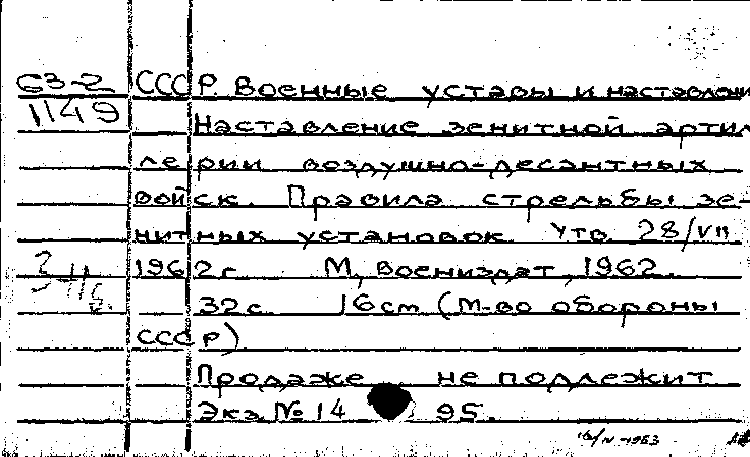 63-2 СССР. Военные уставы и наставлени
1149
Наставление зенитной артил
лерии воздушно-десантных
войск. Правила стрельбы зе-
нитных установок. Утв. 28/VII
1962г. М., Воениздат, 1962.
32с. 16см (М-во обороны
СССР)
Продаже не подлежит
Экз № 14 95.
16/IV-1963